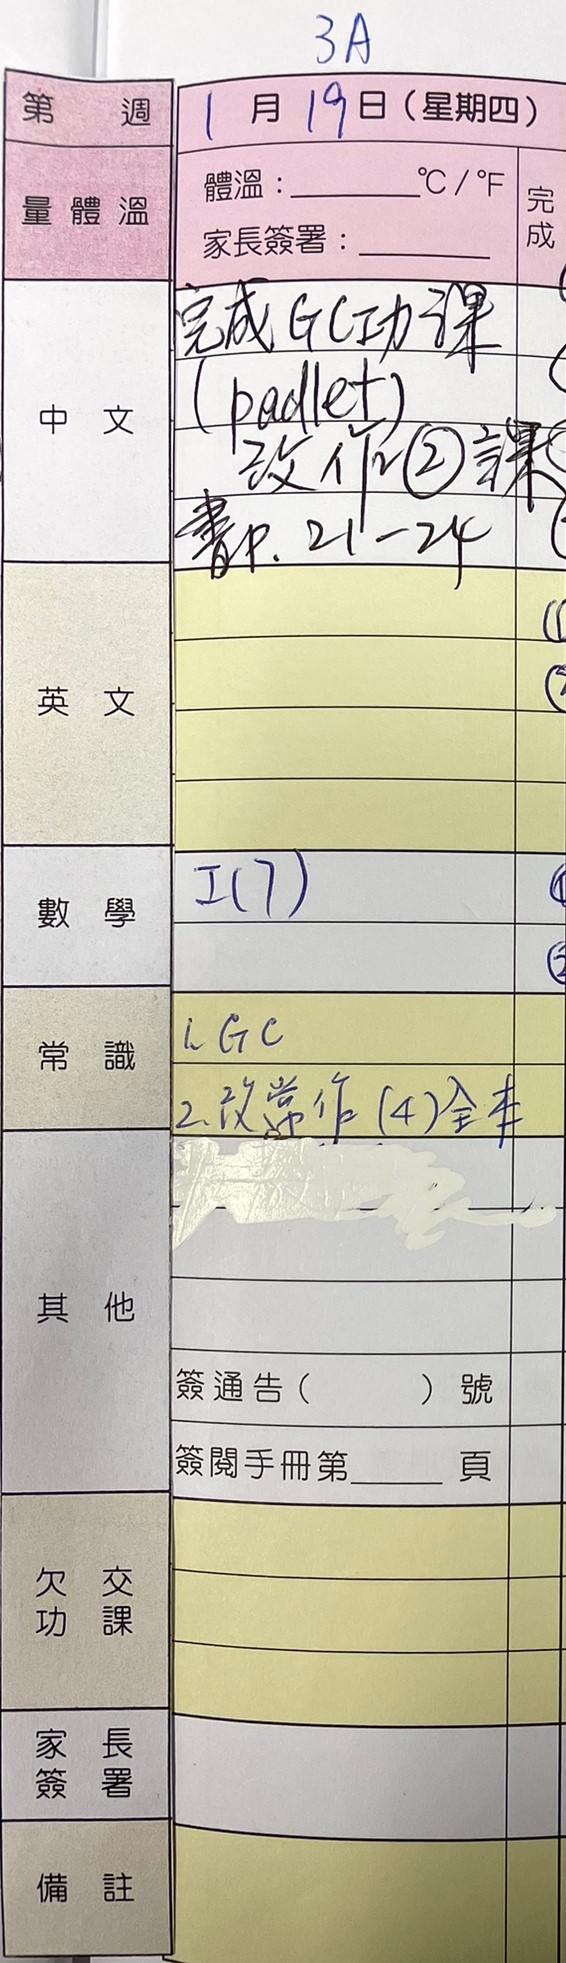 3A
第 週
1月19日(星期四)
量體溫
體溫:______℃/℉
家長簽署:______
完成
中文
完成GC功課
(padlet)
改作②課
書P.21-24
英文
(1
②
數學
I(7)
①
②
常識
1. GC
2.改常作(4)全本
其他
簽通告( )號
簽閱手冊第____頁
欠交功課
家長簽署
備註